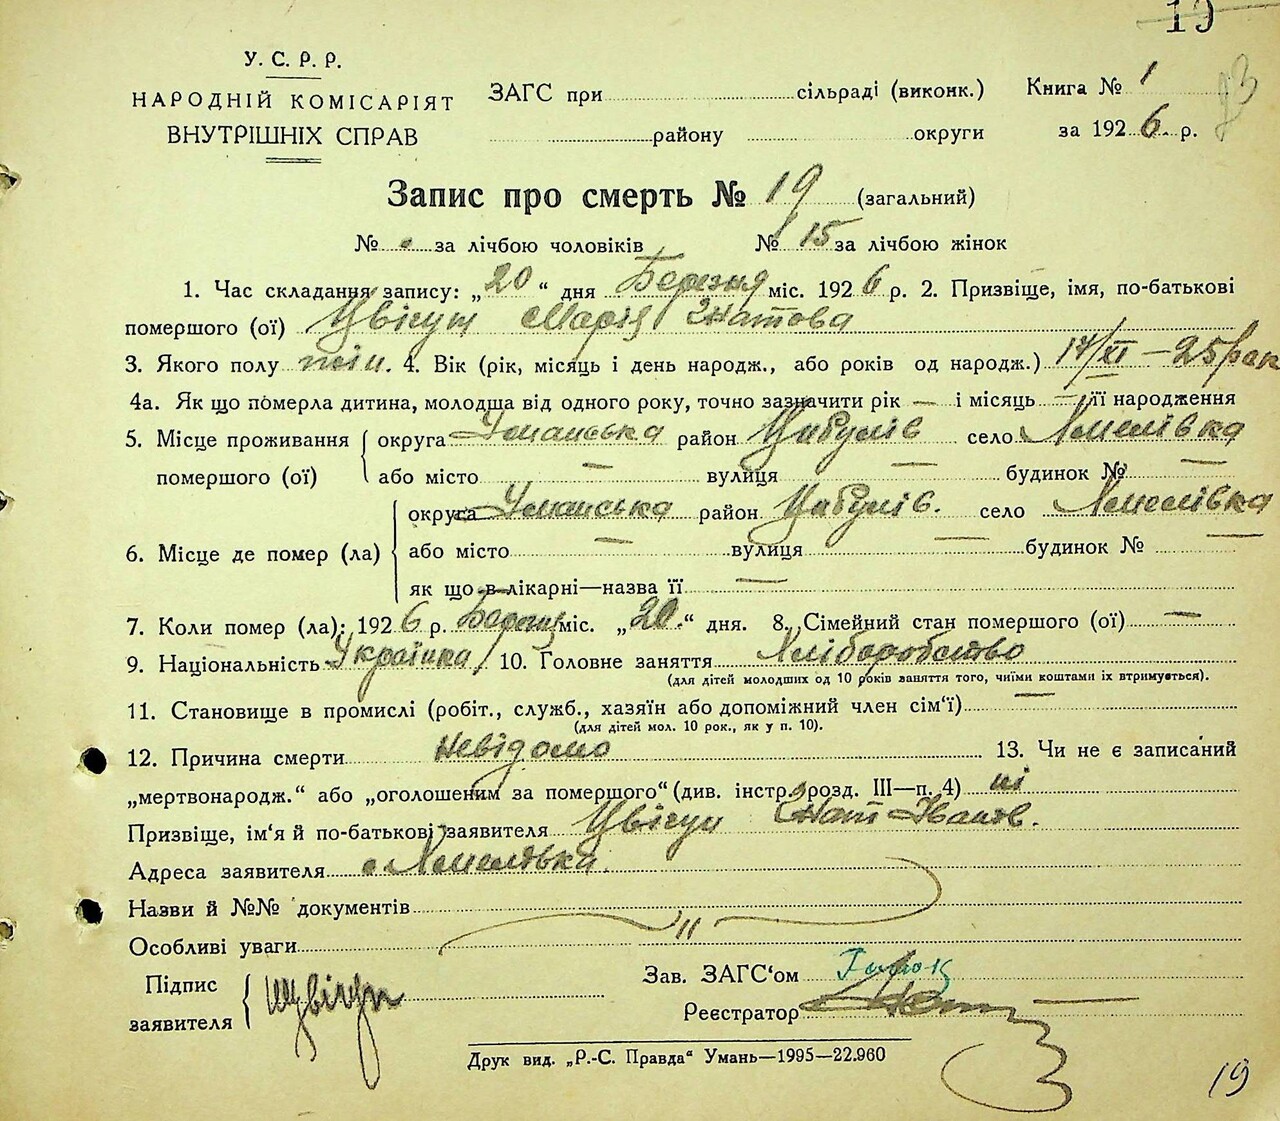 19
У. С. Р. Р.
НАРОДНІЙ КОМІСАРІЯТ
ВНУТРІШНІХ СПРАВ
ЗАГС при сільраді (виконк.)
району округи
Книга № 1
за 1926 р.
23
Запис про смерть № 19 (загальний)
№ за лічбою чоловіків № 15 за лічбою жінок
1. Час складання запису: „20“ дня Березня міс. 1926 р. 2. Призвіще, імя, по-батькові
помершого (ої) Цвігун Марія Гнатова
3. Якого полу жін. 4. Вік (рік, місяць і день народж., або років од народж.) 17/XI – 25 рок
4а. Як що померла дитина, молодща від одного року, точно зазначити рік — і місяць — її народження
5. Місце проживання помершого (ої) округа Уманська район Цибулів село
або місто — вулиця — будинок № —
6. Місце де помер (ла) округа Уманська район Цибулів. село
або місто — вулиця — будинок № —
як що в лікарні—назва її —
7. Коли помер (ла): 1926 р. Березня міс. „20.“ дня. 8. Сімейний стан помершого (ої) —
9. Національність Українка 10. Головне заняття Хліборобство
(для дітей молодших од 10 років заняття того, чиїми коштами їх втримується).
11. Становище в промислі (робіт., служб., хазяїн або допоміжний член сім'ї) —
(для дітей мол. 10 рок., як у п. 10).
12. Причина смерти невідомо 13. Чи не є записаний
„мертвонародж.“ або „оголошеним за помершого“ (див. інстр. розд. III—п. 4) ні
Призвіще, ім'я й по-батькові заявителя Цвігун Гнат Іванов.
Адреса заявителя с.
Назви й №№ документів
Особливі уваги
Підпис заявителя Цвігун
Зав. ЗАГС'ом
Реєстратор
Друк вид. „Р.-С. Правда“ Умань—1995—22.960
19